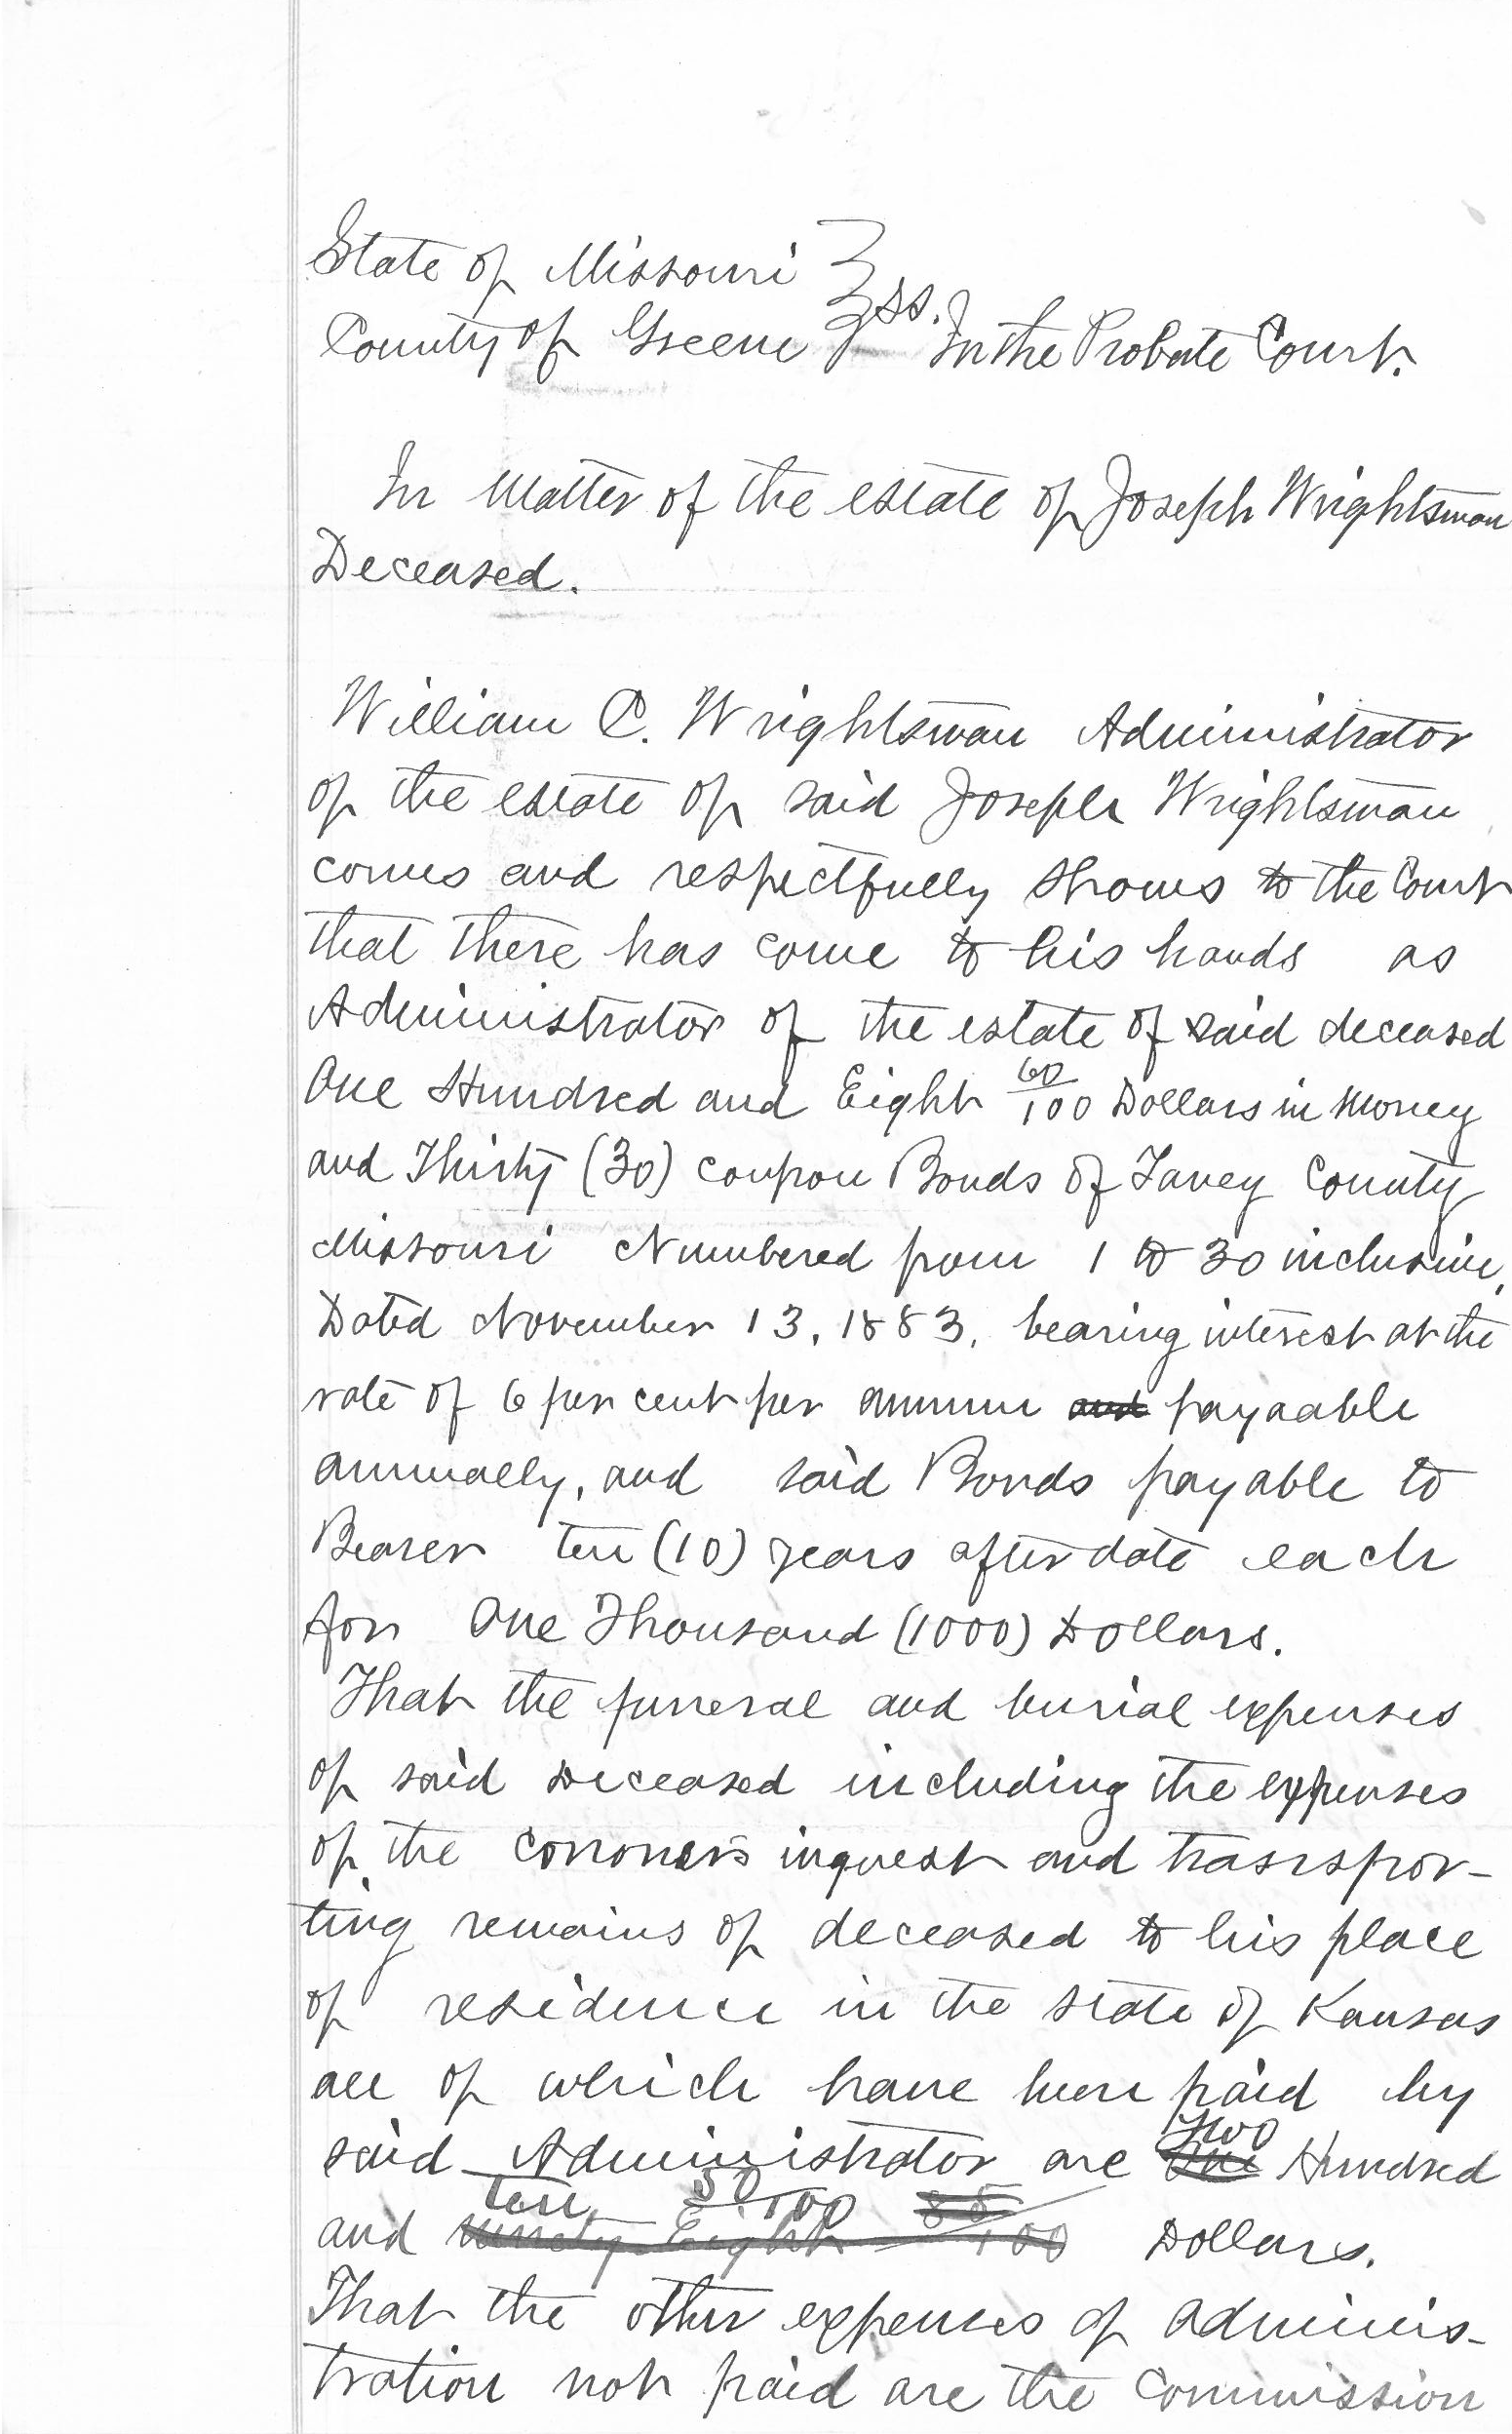 State of Missouri } ss.
County of Greene } In the Probate Court.
In Matter of the estate of Joseph Wrightsman
Deceased.
William C. Wrightsman Administrator
of the estate of said Joseph Wrightsman
comes and respectfully shows to the Court
that there has come to his hands as
Administrator of the estate of said deceased
One Hundred and Eight 60/100 Dollars in Money
and Thirty (30) coupon Bonds of Taney County
Missouri Numbered from 1 to 30 inclusive,
Dated November 13, 1883, bearing interest at the
rate of 6 per cent per annum and payaable
annually, and said Bonds payable to
Bearer ten (10) years after date each
for One Thousand (1000) Dollars.
That the funeral and burial expenses
of said Deceased including the expenses
of the corroner's inquest and transpor-
ting remains of deceased to his place
of residence in the state of Kansas
all of which have been paid by
Two
said Administrator are One Hundred
ten 50/100
and Ninety Eight 85/100 Dollars.
That the other expenses of adminis-
tration not paid are the Commission